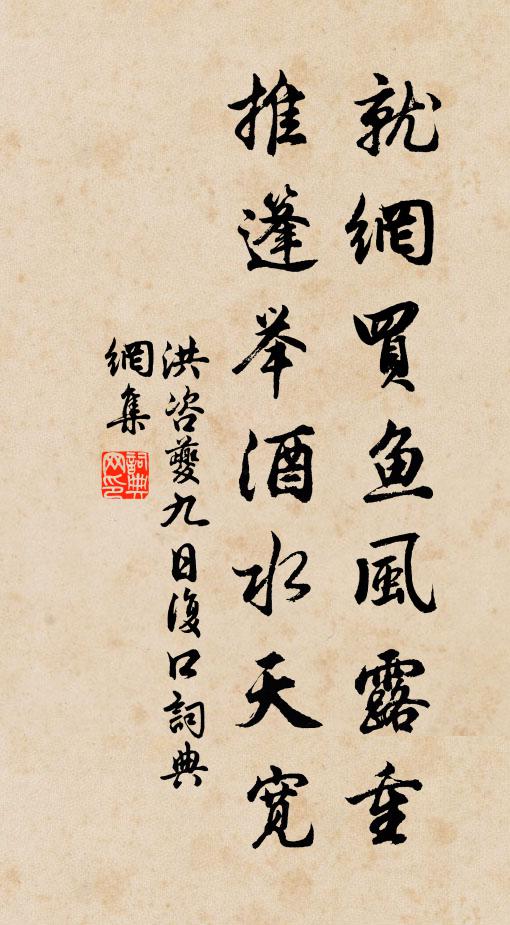 就網買魚風露重
推篷举酒水天寬
洪咨夔九日復口詞典
網集
詞典网印